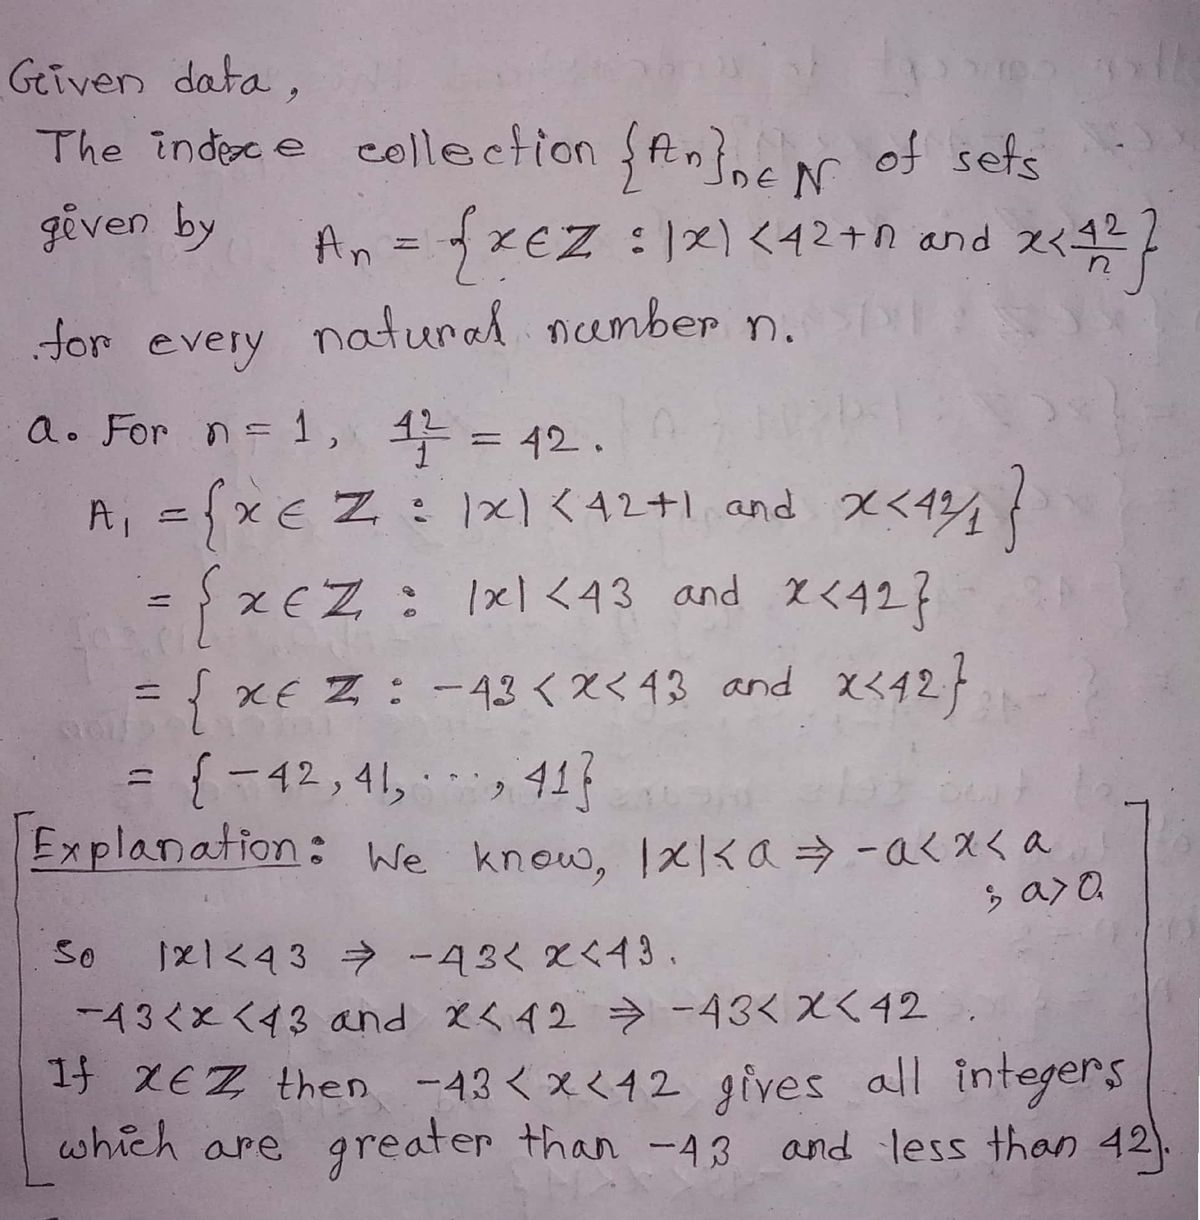 Given data,
The indexe collection {An}n∈N of sets
given by An = {x∈Z : |x|<42+n and x<42/n}
for every natural number n.
a. For n=1, 42/1 = 42.
A₁ = {x∈Z : |x|<42+1 and x<42/1}
= {x∈Z : |x|<43 and x<42}
= {x∈Z : -43<x<43 and x<42}
= {-42, 41, ..., 41}
[Explanation: We know, |x|<a ⇒ -a<x<a
; a>0
So |x|<43 ⇒ -43<x<43.
-43<x<43 and x<42 ⇒ -43<x<42.
If x∈Z then -43<x<42 gives all integers
which are greater than -43 and less than 42].